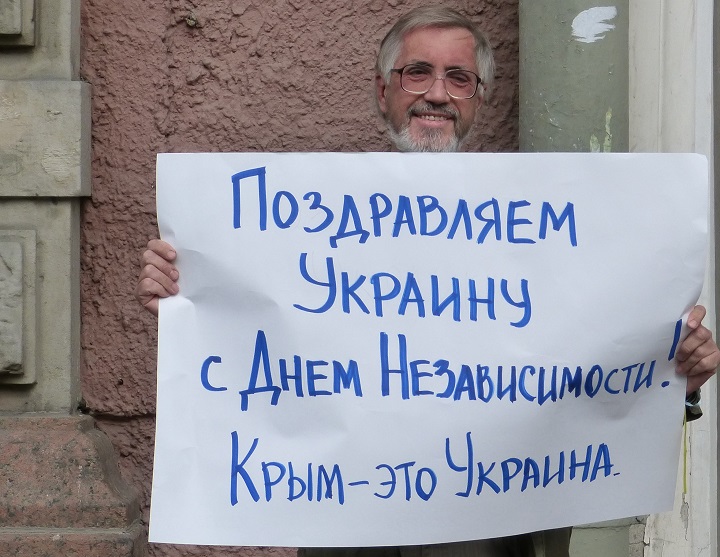 Поздравляем
Украину
с Днем Независимости!
Крым-это Украина.